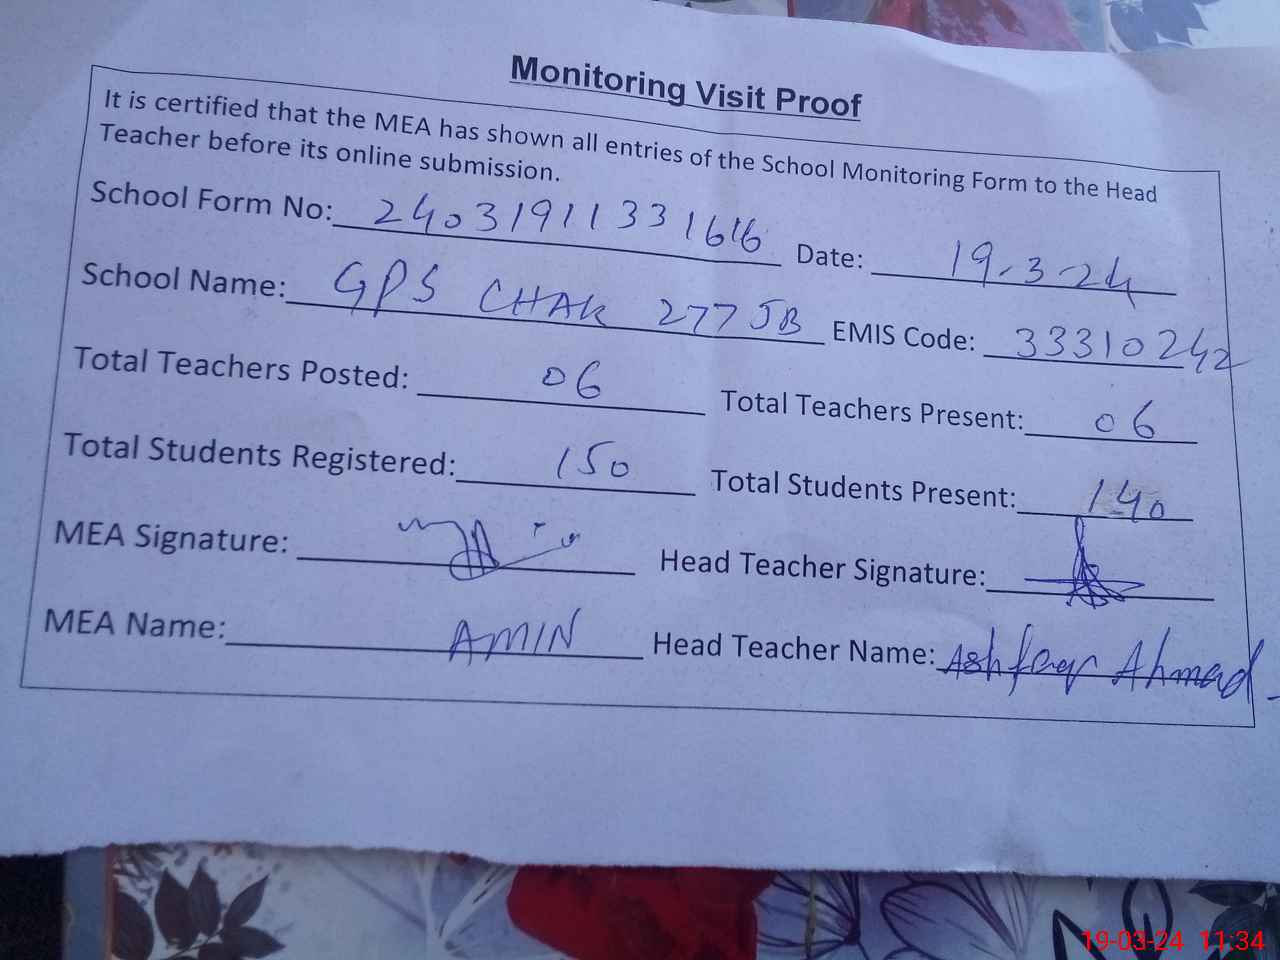 Monitoring Visit Proof
It is certified that the MEA has shown all entries of the School Monitoring Form to the Head
Teacher before its online submission.
School Form No: 24031911331616 Date: 19.3-24
School Name: GPS CHAK 277 JB EMIS Code: 33310242
Total Teachers Posted: 06 Total Teachers Present: 06
Total Students Registered: 150 Total Students Present: 140
MEA Signature: Head Teacher Signature:
MEA Name: AMIN Head Teacher Name: Ashfaq Ahmad
19-03-24 11:34